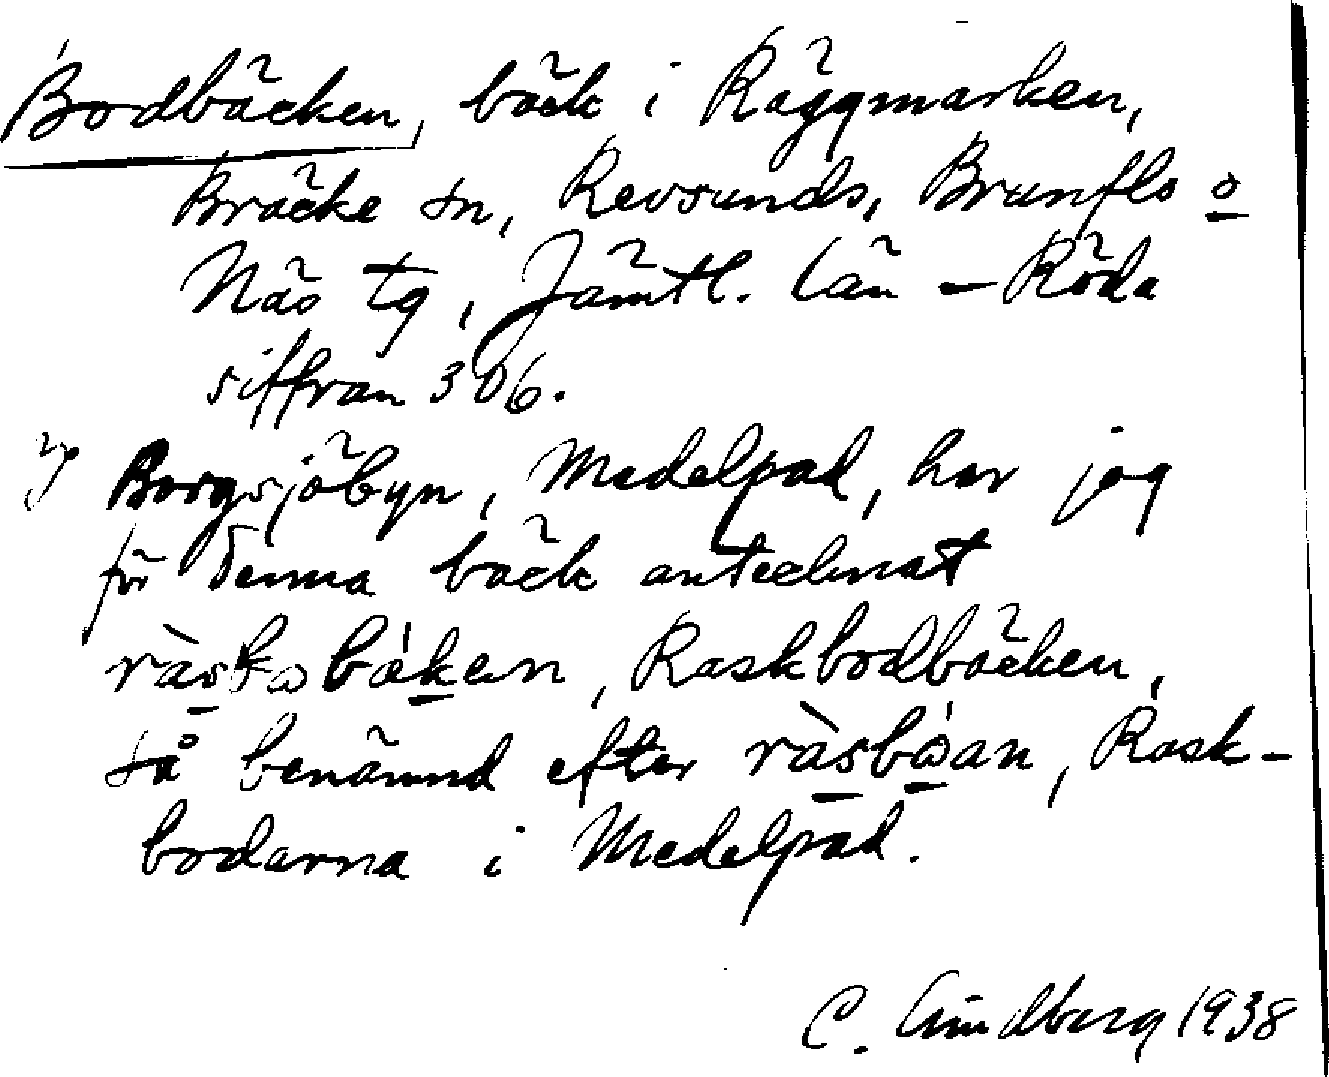 Bodbäcken, bäck i Räggmarken,
Bräcke sn, Revsunds, Brunflo o
Näs tg, Jämtl. län – Röda
siffran 306.
I Borgsjöbyn, Medelpad, har jag
för denna bäck antecknat
ràskɷbákan, Raskbodbäcken,
så benämnd efter ràsbɷ́an, Rask-
bodarna i Medelpad.
C. Lindberg 1938